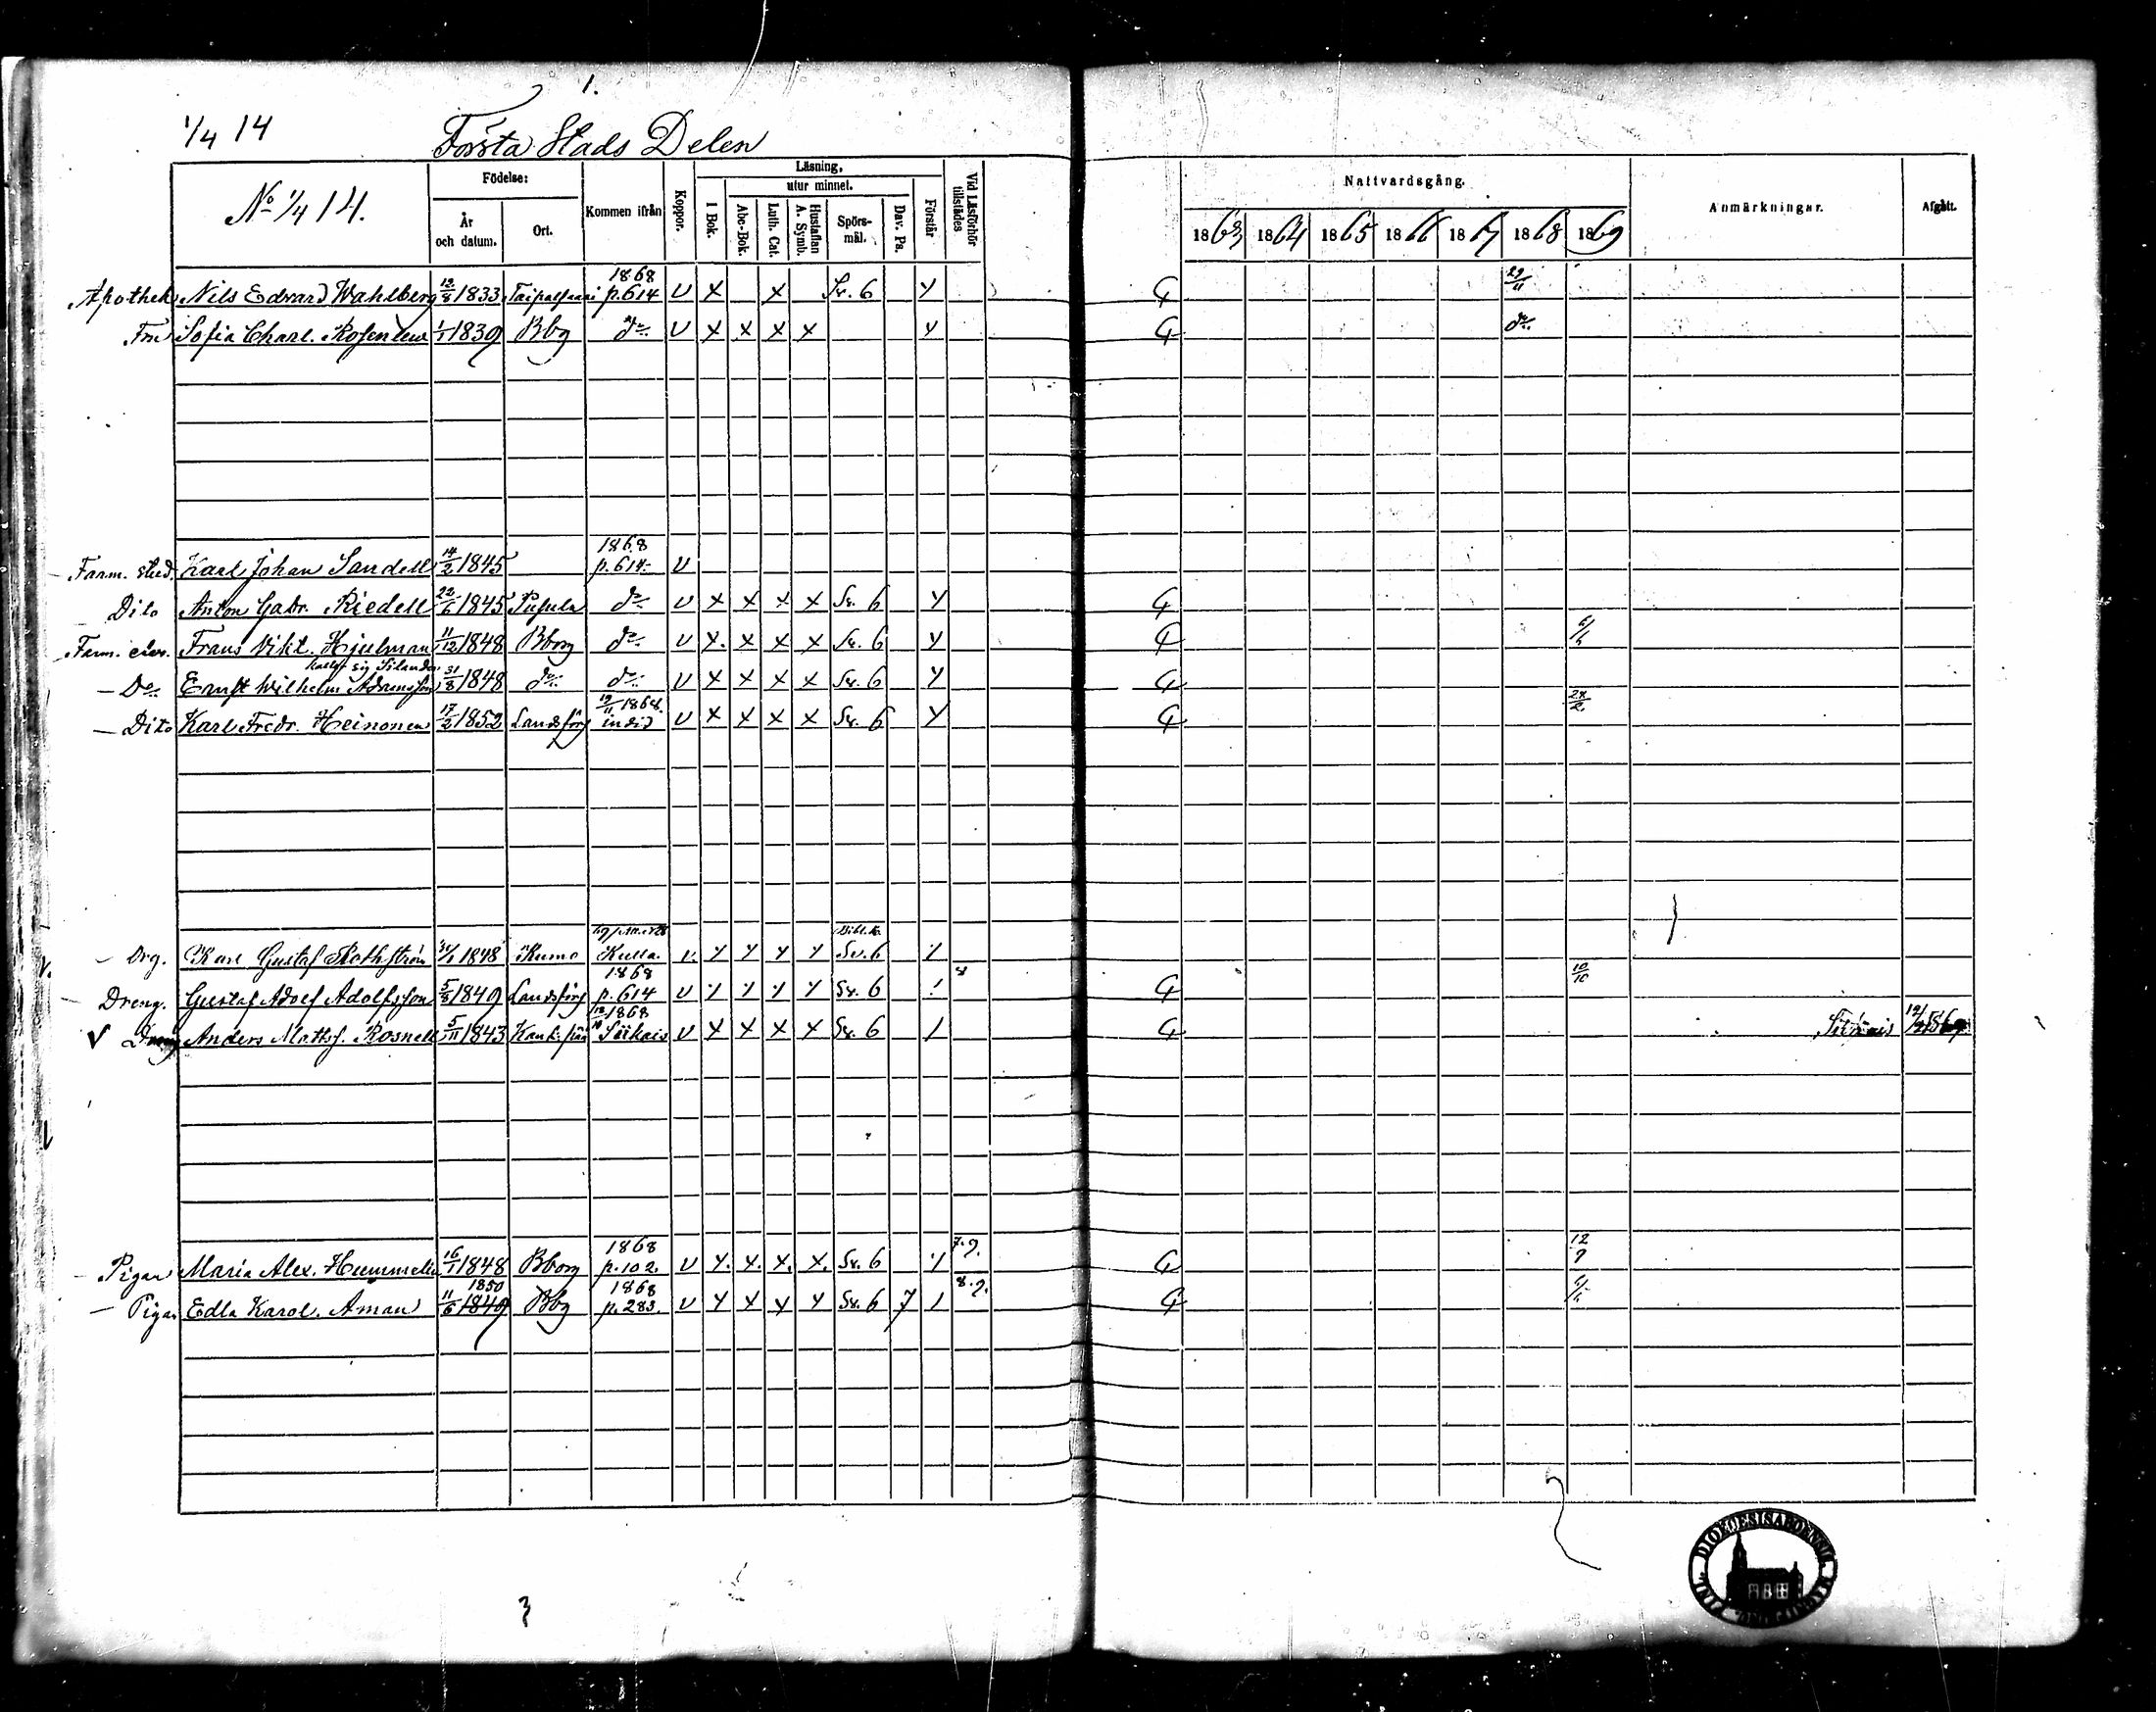 1.
1/4 14 Första Stads Delen
No 1/4 14. Födelse: Kommen ifrån Koppor. Läsning, Vid Läsförhör tillstädes Nattvardsgång. Anmärkningar. Afgått.
År och datum. Ort. I Bok. utur minnet. Förstår
Abc-Bok. Luth. Cat. Hustaflan A. Symb. Spörs-mål. Dav. Ps. 1863 1864 1865 1866 1867 1868 1869
Apothek. Nils Edvard Wahlberg 12/8 1833 Taipalsaari 1868 p. 614 v x x Sv. 6 y G 29/11
Fru Sofia Charl. Rosenlew 1/1 1839 Bbg do v x x x x y G do
Farm. stud. Karl Johan Sandell 14/2 1845 1868 p. 614 v
Dito Anton Gabr. Riedell 22/6 1845 Pusula do v x x x x Sv. 6 y G
Farm. elev. Frans Vikt. Hjulman 11/12 1848 Bborg do v x x x x Sv. 6 y G
kallar sig Silander
Do Ernst Wilhelm Adamsson 31/8 1848 do do v x x x x Sv. 6 y G
Dito Karl Fredr. Heinonen 17/2 1852 Landsförs 19/11 1868 v x x x x Sv. 6 y G 28/2
Drg. Karl Gustaf Rothström 1848 Kumo Kulla v. y y y y Sv. 6 y
Dreng. Gustaf Adolf Adolfsson 5/8 1849 Landsförs 1868 p. 614 v y y y y Sv. 6 G 10/10
V Dreng Anders Mattss. Rosnell 5/11 1843 18/10 1868 Siikais v x x x x Sv. 6 1 G Siikais 1869
Pigan Maria Alex. Hummelin 16/1 1848 Bborg 1868 p. 102. v y. x. x. x. Sv. 6 y 7.9. G 12/9
Pigan Edla Karol. Aman 11/6 1849 1850 Bbg 1868 p. 283. v y x y y Sv. 6 7 1 8.9. G
3